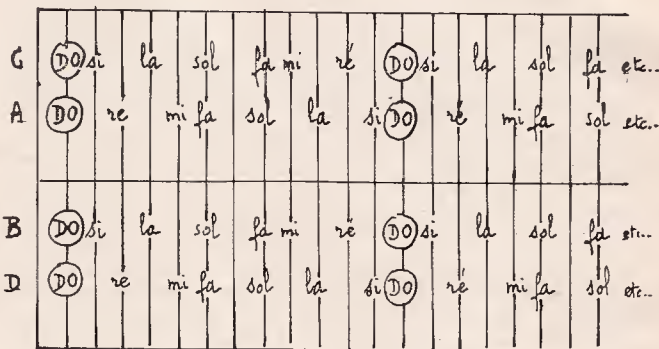 C DO si la sol fa mi ré DO si la sol fa etc..
A DO ré mi fa sol la si DO ré mi fa sol etc..
B DO si la sol fa mi ré DO si la sol fa etc..
D DO ré mi fa sol la si DO ré mi fa sol etc..